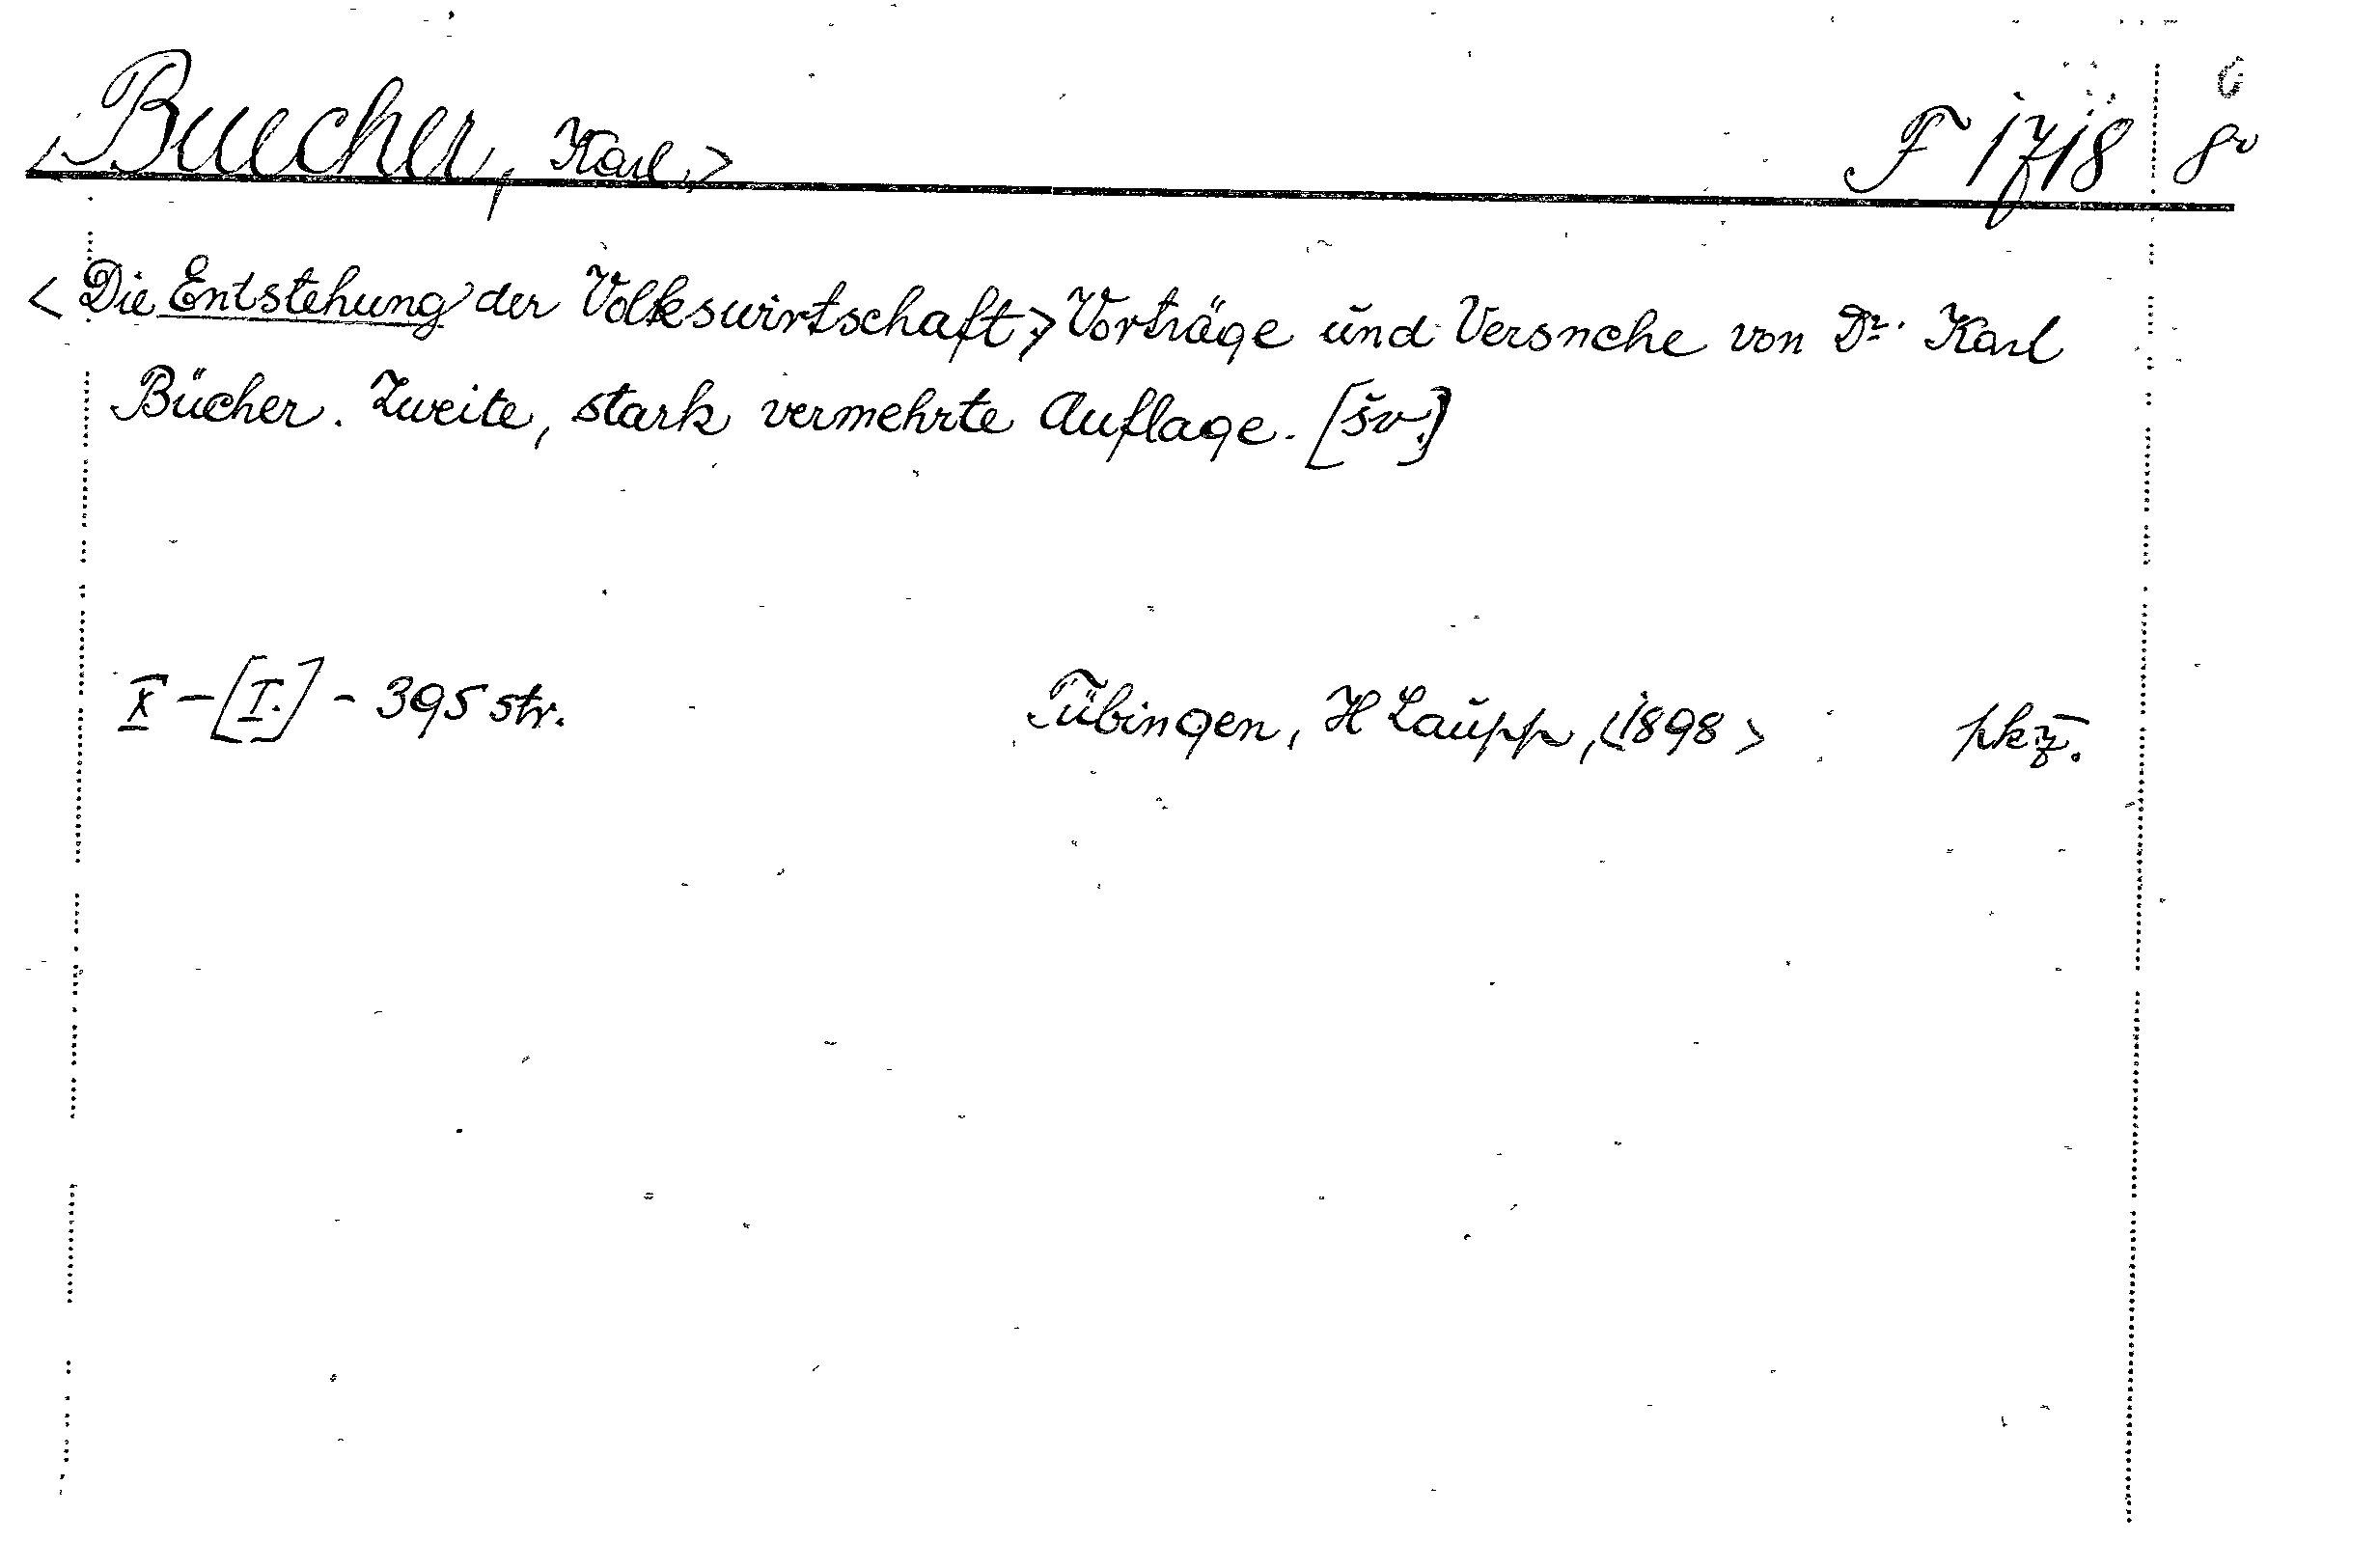 <Buecher, Karl,> F 1718 8º
<Die Entstehung der Volkswirtschaft> Vorträge und Versuche von Dr. Karl
Bücher. Zweite, stark vermehrte Auflage. [šv.]
X-[I.]-395 str. Tübingen, H Laupp, <1898> pkz.